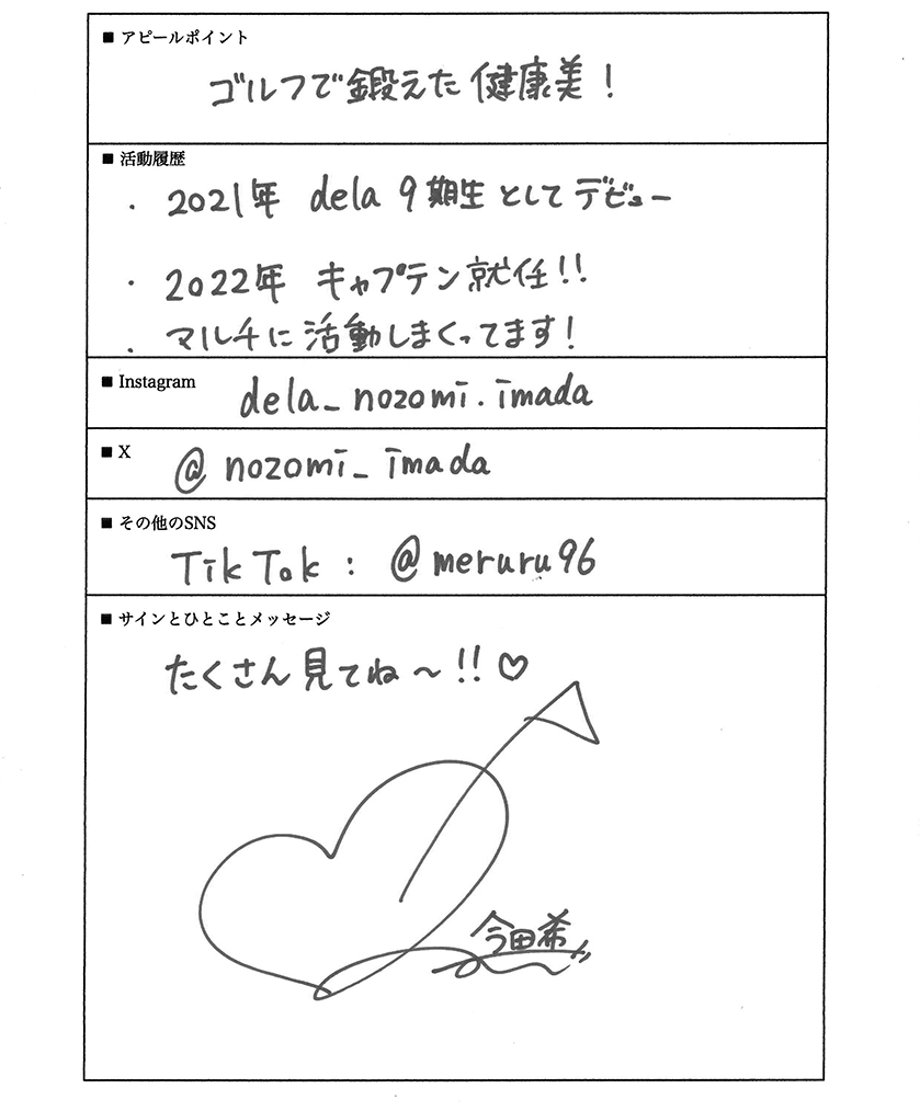 ■ アピールポイント
ゴルフで鍛えた健康美!
■ 活動履歴
・2021年 dela 9期生としてデビュー
・2022年 キャプテン就任!!
・マルチに活動しまくってます!
■ Instagram dela_nozomi.imada
■ X @nozomi_imada
■ その他のSNS
TikTok : @meruru96
■ サインとひとことメッセージ
たくさん見てね～!!♡
今田希